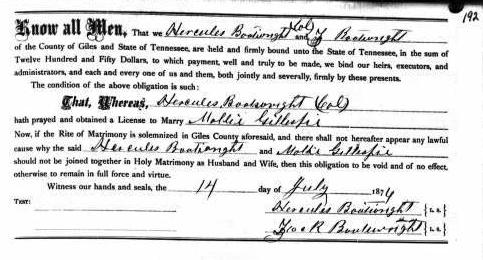 192
Know all Men, That we Hercules Boatwright (Col) and Z Boatwright
of the County of Giles and State of Tennessee, are held and firmly bound unto the State of Tennessee, in the sum of
Twelve Hundred and Fifty Dollars, to which payment, well and truly to be made, we bind our heirs, executors, and
administrators, and each and every one of us and them, both jointly and severally, firmly by these presents.
The condition of the above obligation is such:
That, Whereas, Hercules Boatwright (Col)
hath prayed and obtained a License to Marry Mollie Gillespie
Now, if the Rite of Matrimony is solemnized in Giles County aforesaid, and there shall not hereafter appear any lawful
cause why the said Hercules Boatwright and Mollie Gillespie
should not be joined together in Holy Matrimony as Husband and Wife, then this obligation to be void and of no effect,
otherwise to remain in full force and virtue.
Witness our hands and seals, the 14 day of July 1876
Test: Hercules Boatwright {L.S.}
Boatwright {L.S.}